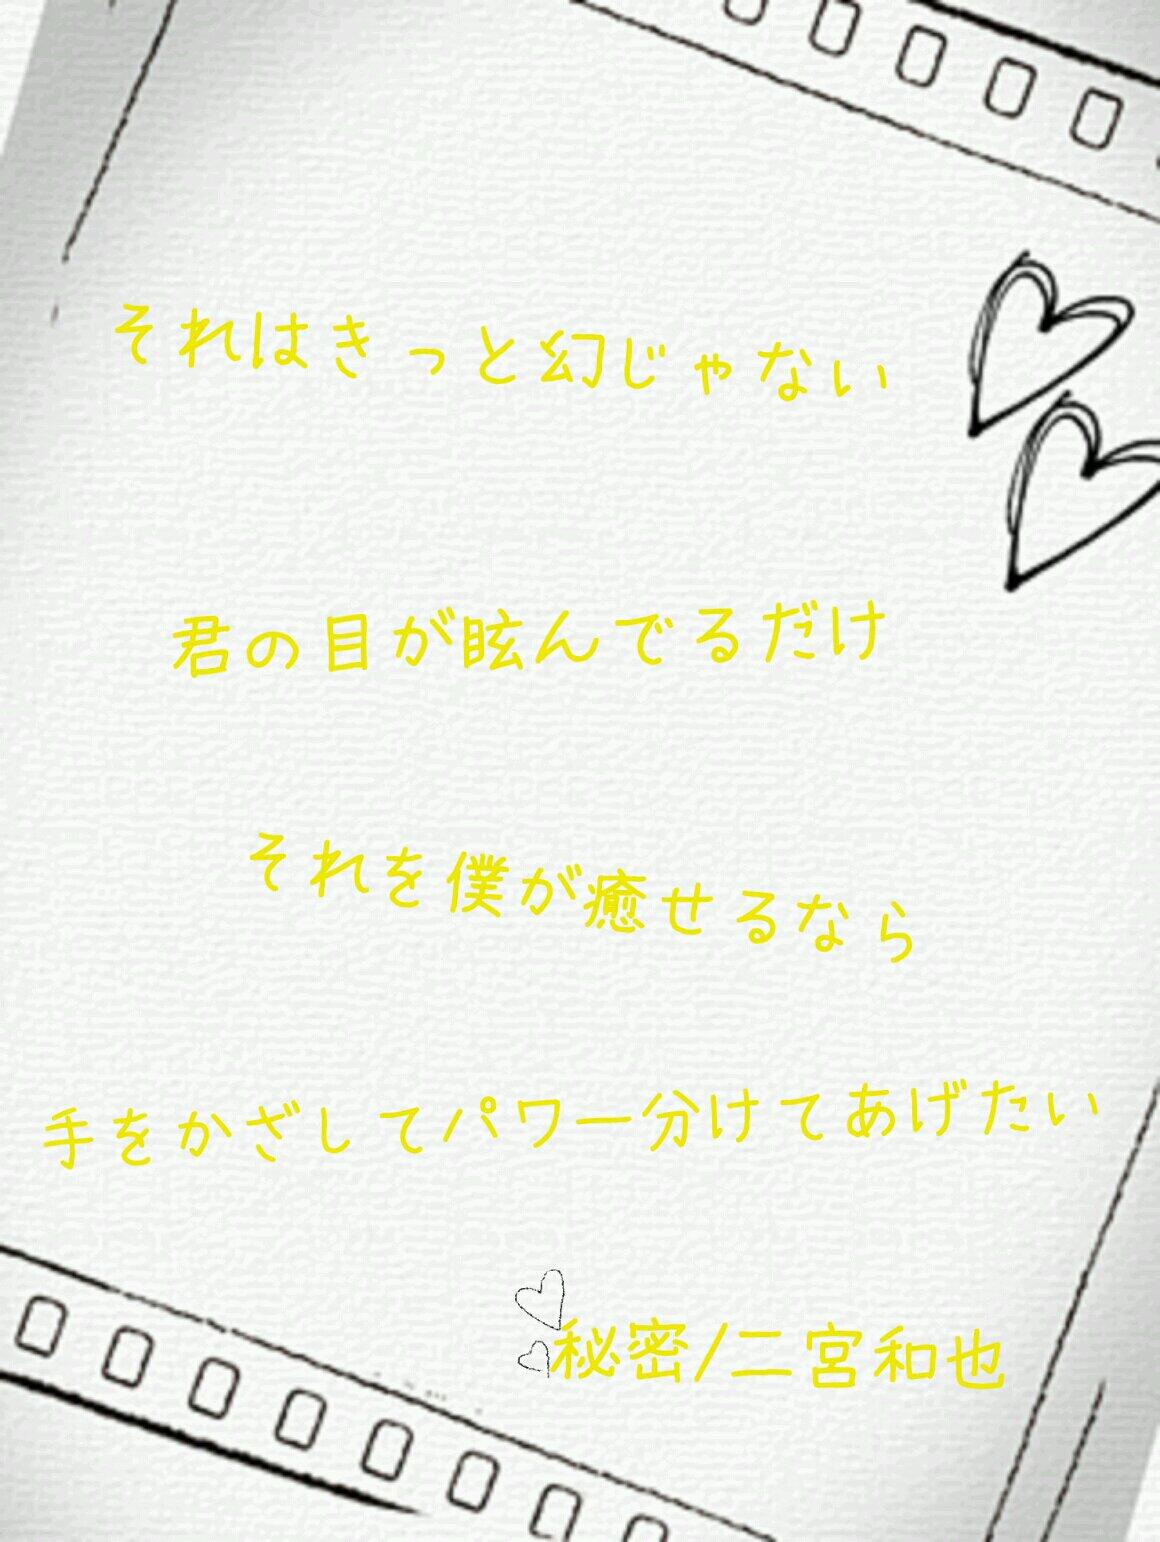 それはきっと幻じゃない
君の目が眩んでるだけ
それを僕が癒せるなら
手をかざしてパワー分けてあげたい
秘密/二宮和也